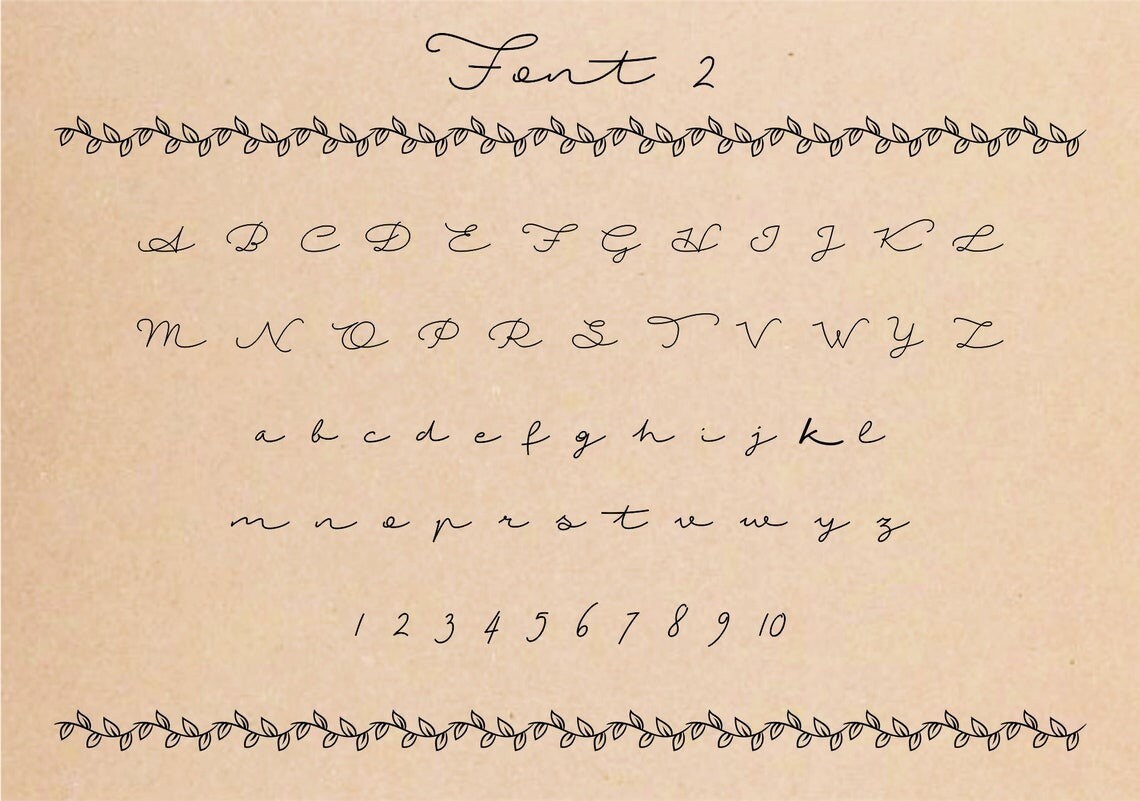 Font 2
A B C D E F G H I J K L
M N O P R S T V W Y Z
a b c d e f g h i j k l
m n o p r s t v w y z
1 2 3 4 5 6 7 8 9 10